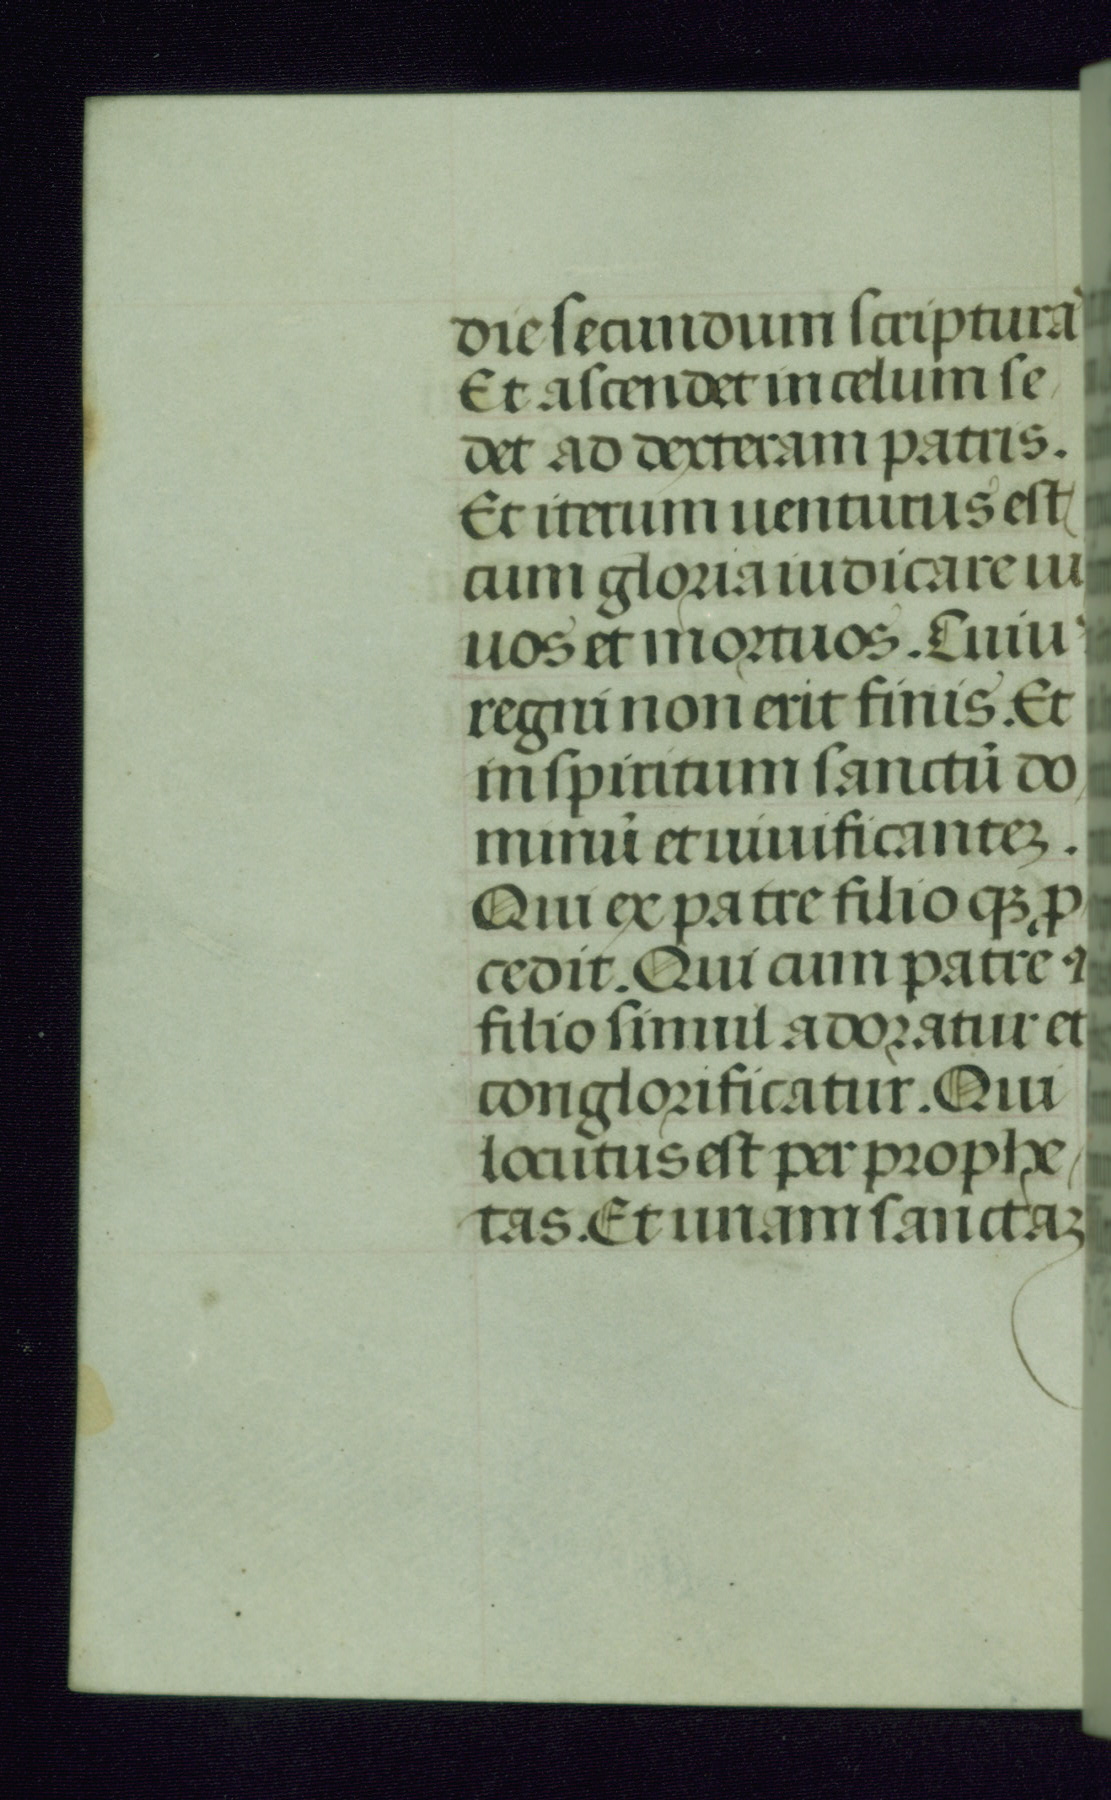 die secundum scripturaˢ
Et ascendet in celum se
det ad dexteram patris.
Et iterum uenturus est
cum gloria iudicare ui
uos et mortuos. Cuiuꝰ
regni non erit finis. Et
in spiritum sanctū do
minū et uiuificantēꝫ.
Qui ex patre filio qꝫ ꝓ
cedit. Qui cum patre ⁊
filio simul adoratur et
conglorificatur. Qui
locutus est per prophe
tas. Et unam sanctaꝫ